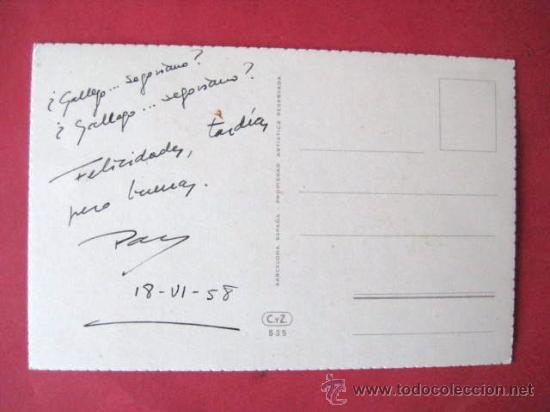 ¿Gallego... segoviano?
¿Gallego... segoviano?
Felicidades, tardías
pero buenas.
18-VI-58
BARCELONA ESPAÑA PROPIEDAD ARTISTICA RESERVADA
C.yZ.
www.todocoleccion.net